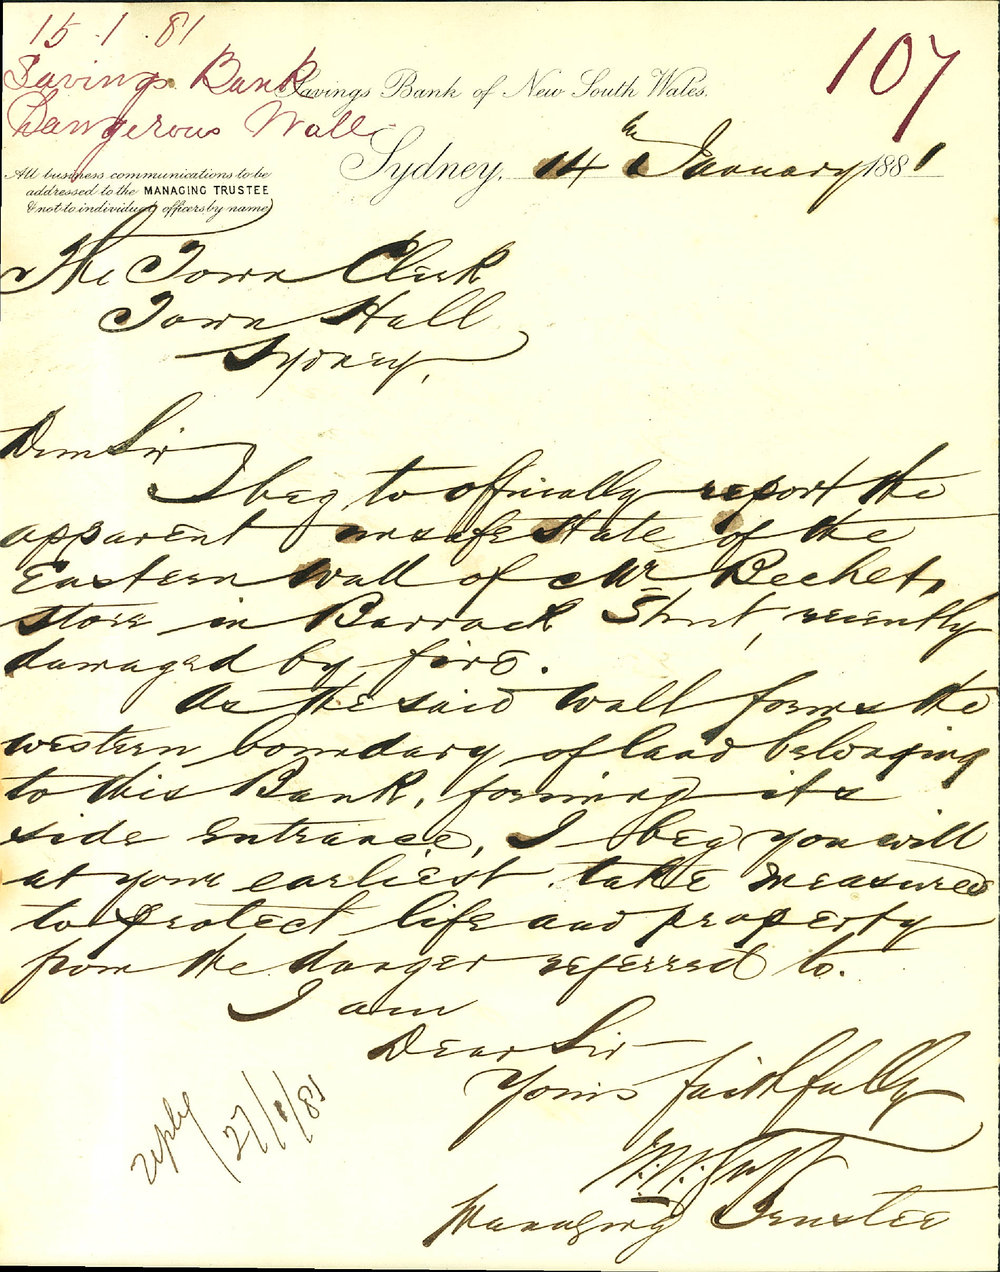 15 . 1 . 81
Savings Bank
Dangerous Wall
107
Savings Bank of New South Wales.
Sydney, 14th January 1881
All business communications to be
addressed to the MANAGING TRUSTEE
& not to individual officers by name
The Town Clerk
Town Hall
Sydney,
Dear Sir
I beg to officially report the
apparent unsafe state of the
Eastern Wall of Mr
store in Barrack Street, recently
damaged by fire.
As the said wall forms the
western boundary of land belonging
to this Bank, forming its
side entrance, I beg you will
at your earliest take measures
to protect life and property
from the danger referred to.
I am
Dear Sir
Yours faithfully
Managing Trustee
reply 27/1/81